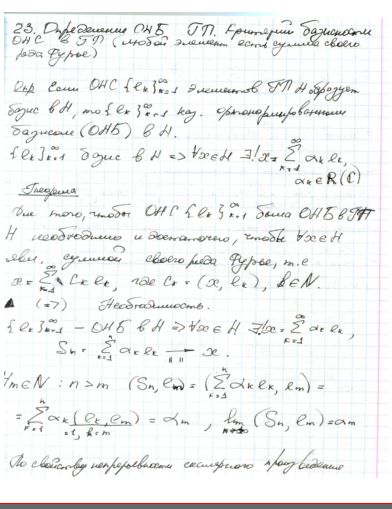 23. Определение ОНБ. ГП. Критерий базисности
ОНС в ГП (любой элемент есть сумма своего
ряда Фурье)
Опр Если ОНС {eₖ}ₖ₌₁^∞ элементов ГП H образует
базис в H, то {eₖ}ₖ₌₁^∞ наз. ортонормированным
базисом (ОНБ) в H.
{eₖ}ₖ₌₁^∞ базис в H => ∀x∈H ∃! x = ∑ₖ₌₁^∞ αₖeₖ,
αₖ∈R(C)
Теорема
Для того, чтобы ОНС {eₖ}ₖ₌₁^∞ была ОНБ в ГП
H необходимо и достаточно, чтобы ∀x∈H
явл. суммой своего ряда Фурье, т.е
x = ∑ₖ₌₁^∞ cₖeₖ, где cₖ = (x, eₖ), k∈N.
▲ (=>) Необходимость.
{eₖ}ₖ₌₁^∞ – ОНБ в H => ∀x∈H ∃! x = ∑ₖ₌₁^∞ αₖeₖ,
Sₙ = ∑ₖ₌₁^n αₖeₖ → x.
∀m∈N : n>m (Sₙ, eₘ) = (∑ₖ₌₁^n αₖeₖ, eₘ) =
= ∑ₖ₌₁^n αₖ(eₖ, eₘ) = αₘ, lim (Sₙ, eₘ) = αₘ
=1, k=m n→∞
По свойству непрерывности скалярного произведение